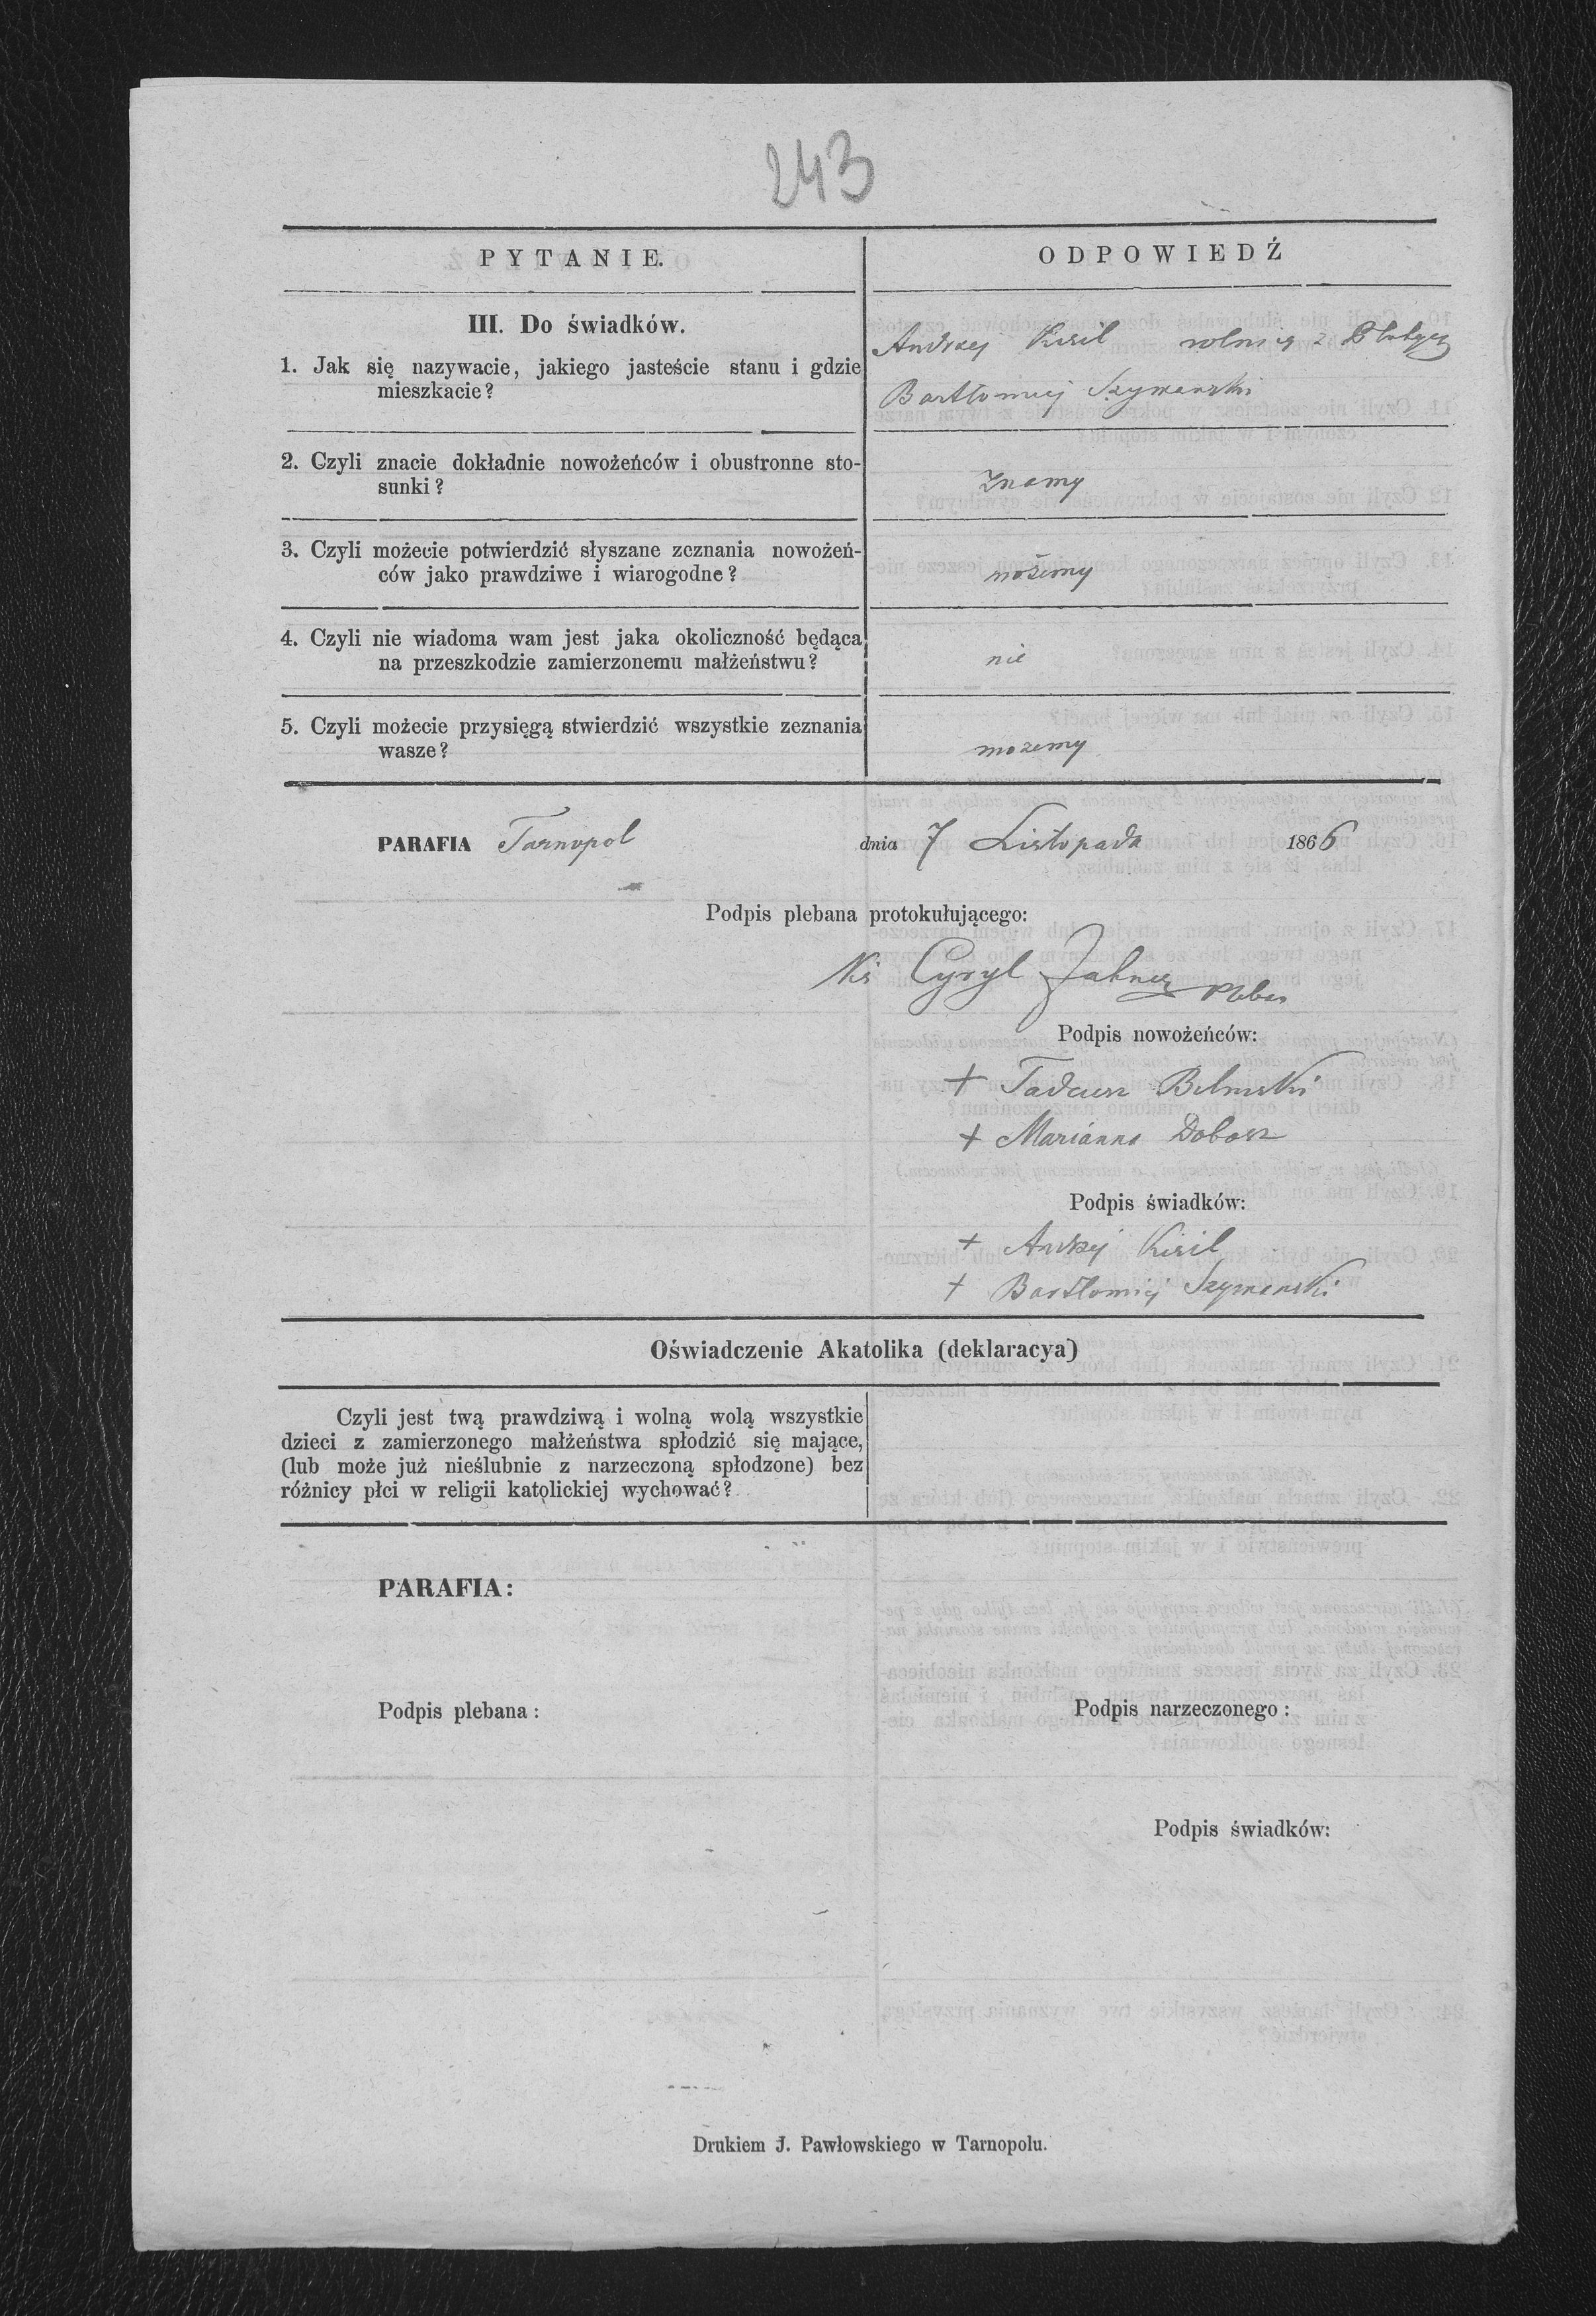 243
PYTANIE.
ODPOWIEDŹ
III. Do świadków.
1. Jak się nazywacie, jakiego jasteście stanu i gdzie
mieszkacie?
Andrzej Kiril rolnicy z
Bartłomiej Szymanski
2. Czyli znacie dokładnie nowożeńców i obustronne sto-
sunki?
Znamy
3. Czyli możecie potwierdzić słyszane zeznania nowożeń-
ców jako prawdziwe i wiarogodne?
możemy
4. Czyli nie wiadoma wam jest jaka okoliczność będąca
na przeszkodzie zamierzonemu małżeństwu?
nie
5. Czyli możecie przysięgą stwierdzić wszystkie zeznania
wasze?
mozemy
PARAFIA Tarnopol dnia 7 Listopada 1866
Podpis plebana protokułującego:
Ks Cyryl
Podpis nowożeńców:
+ Tadeusz
+ Marianna Dobosz
Podpis świadków:
+ Andrzej Kiril
+ Bartłomiej Szymanski
Oświadczenie Akatolika (deklaracya)
Czyli jest twą prawdziwą i wolną wolą wszystkie
dzieci z zamierzonego małżeństwa spłodzić się mające,
(lub może już nieślubnie z narzeczoną spłodzone) bez
różnicy płci w religii katolickiej wychować?
PARAFIA:
Podpis plebana :
Podpis narzeczonego :
Podpis świadków:
Drukiem J. Pawłowskiego w Tarnopolu.